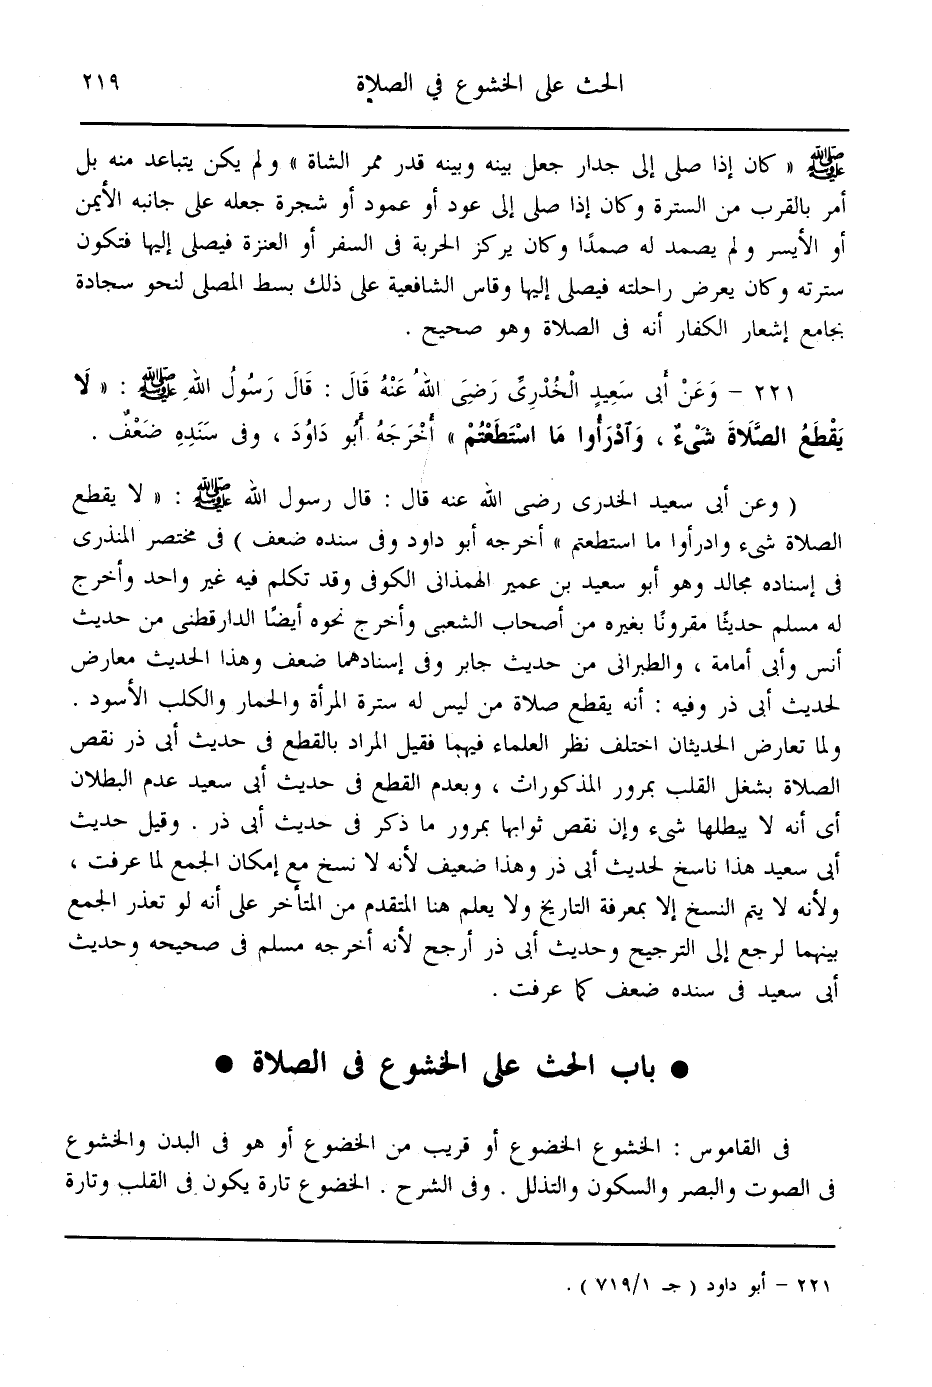 الحث على الخشوع في الصلاة ٢١٩
ﷺ « كان إذا صلى إلى جدار جعل بينه وبينه قدر ممر الشاة » ولم يكن يتباعد منه بل
أمر بالقرب من السترة وكان إذا صلى إلى عود أو عمود أو شجرة جعله على جانبه الأيمن
أو الأيسر ولم يصمد له صمدًا وكان يركز الحربة فى السفر أو العنزة فيصلى إليها فتكون
سترته وكان يعرض راحلته فيصلى إليها وقاس الشافعية على ذلك بسط المصلى لنحو سجادة
بجامع إشعار الكفار أنه فى الصلاة وهو صحيح .
٢٢١ - وَعَنْ أبى سَعِيدٍ الْخُدْرِىِّ رَضِىَ اللهُ عَنْهُ قَالَ : قَالَ رَسُولُ اللهِ ﷺ : « لَا
يَقْطَعُ الصَّلَاةَ شَىْءٌ ، وَآدْرَأُوا مَا اسْتَطَعْتُمْ » أَخْرَجَهُ أَبُو دَاوُدَ ، وفى سَنَدِهِ ضَعْفٌ .
( وعن أبى سعيد الخدرى رضى الله عنه قال : قال رسول الله ﷺ : « لا يقطع
الصلاة شىء وادرأوا ما استطعتم » أخرجه أبو داود وفى سنده ضعف ) فى مختصر المنذرى
فى إسناده مجالد وهو أبو سعيد بن عمير الهمذانى الكوفى وقد تكلم فيه غير واحد وأخرج
له مسلم حديثًا مقرونًا بغيره من أصحاب الشعبى وأخرج نحوه أيضًا الدارقطنى من حديث
أنس وأبى أمامة ، والطبرانى من حديث جابر وفى إسنادهما ضعف وهذا الحديث معارض
لحديث أبى ذر وفيه : أنه يقطع صلاة من ليس له سترة المرأة والحمار والكلب الأسود .
ولما تعارض الحديثان اختلف نظر العلماء فيهما فقيل المراد بالقطع فى حديث أبى ذر نقص
الصلاة بشغل القلب بمرور المذكورات ، وبعدم القطع فى حديث أبى سعيد عدم البطلان
أى أنه لا يبطلها شىء وإن نقص ثوابها بمرور ما ذكر فى حديث أبى ذر . وقيل حديث
أبى سعيد هذا ناسخ لحديث أبى ذر وهذا ضعيف لأنه لا نسخ مع إمكان الجمع لما عرفت ،
ولأنه لا يتم النسخ إلا بمعرفة التاريخ ولا يعلم هنا المتقدم من المتأخر على أنه لو تعذر الجمع
بينهما لرجع إلى الترجيح وحديث أبى ذر أرجح لأنه أخرجه مسلم فى صحيحه وحديث
أبى سعيد فى سنده ضعف كما عرفت .
● باب الحث على الخشوع فى الصلاة ●
فى القاموس : الخشوع الخضوع أو قريب من الخضوع أو هو فى البدن والخشوع
فى الصوت والبصر والسكون والتذلل . وفى الشرح . الخضوع تارة يكون فى القلب وتارة
٢٢١ - أبو داود ( جـ ٧١٩/١ ) .